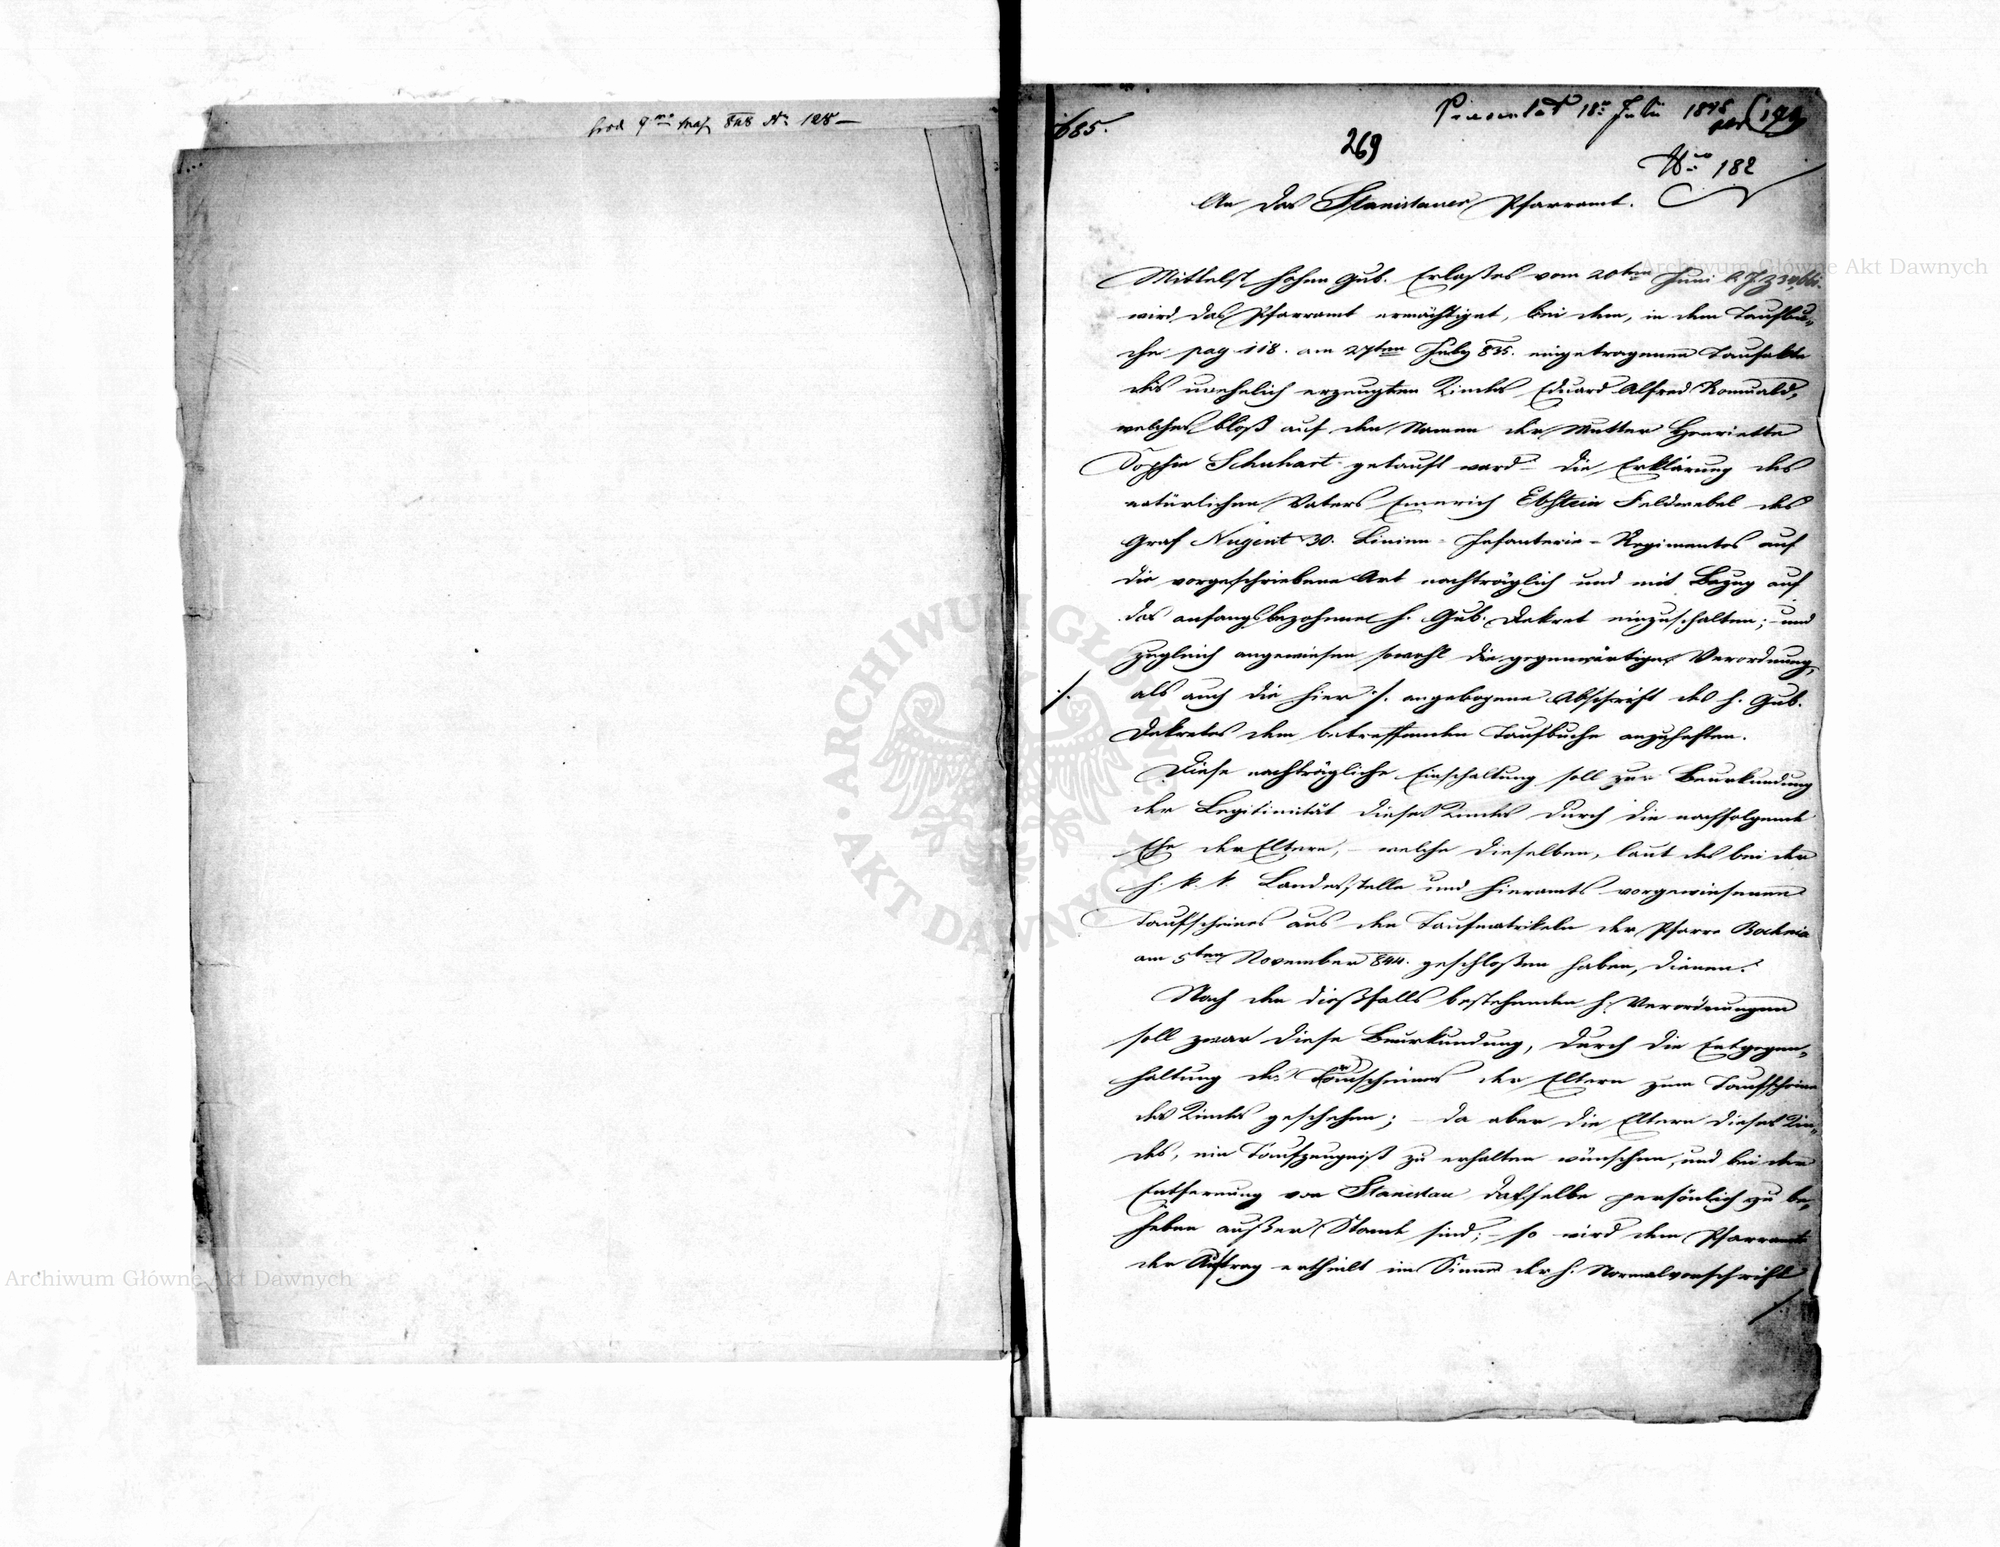 prod 9 848 No 128 –
685.
Praesentat 18n Julii 1848
269
Nro 182
An das Stanislauer Pfarramt.
Mittelst hohen Gub. Erlaßes vom 20ten Juni l. J. Z
wird das Pfarramt ermächtiget, bei dem, in dem Taufbu„
che pag 118. am 27ten July 835. eingetragenen Taufakte
des unehelich erzeugten Kindes Eduard Alfred Romuald,
welches bloß auf den Namen der Mutter Henriette
Sophie Schuhart getauft ward – die Erklärung des
natürlichen Vaters Emerich Ebstein Feldwebel des
Graf Nugent 30. Linien-Infanterie-Regimentes auf
die vorgeschriebene Art nachträglich und mit Bezug auf
das anfangsbezohene h. Gub. Dekret einzuschalten; – und
zugleich angewiesen sowohl die gegenwärtige Verordnung,
./. als auch die hier ./. angebogene Abschrift des h. Gub.
Dekretes dem betreffenden Taufbuche anzuheften.
Diese nachträgliche Einschaltung soll zur Beurkundung
der Legitimität dieses Kindes durch die nachfolgende
Ehe der Eltern, – welche dieselben, laut des bei der
h. k. k. Landesstelle und hieramts vorgewiesenen
Taufscheines aus den Taufmatrikeln der Pfarre Bochnia
am 5ten November 844. geschloßen haben, dienen.
Nach den dießfalls bestehenden h. Verordnungen
soll zwar diese Beurkundung, durch die Entgegen„
haltung des Trauscheines der Eltern zum Taufscheine
des Kindes geschehen; – da aber die Eltern dieses Kin„
des, ein Taufzeugniß zu erhalten wünschen, und bei der
Entfernung von Stanislau dasselbe persönlich zu be„
heben außer Stande sind; – so wird dem Pfarramte
der Auftrag ertheilt im Sinne der h. Normalvorschrift
./.
Archiwum Główne Akt Dawnych
Archiwum Główne Akt Dawnych
ARCHIWUM GŁÓWNE · AKT DAWNYCH ·